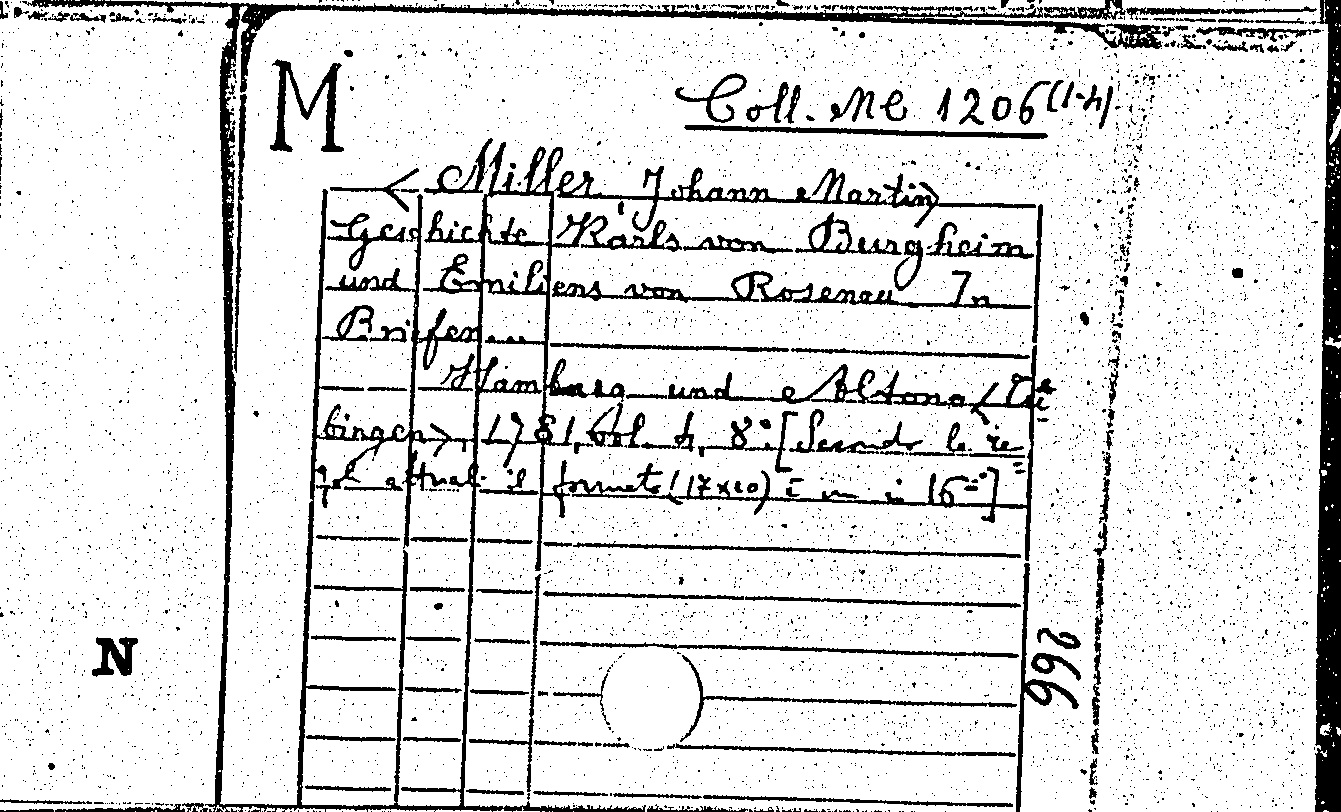 M
Coll. MC 1206 (1-4)
< Miller, Johann Martin>
Geschichte Karls von Burgheim
und Emiliens von Rosenau. In
Briefen...
Hamburg und Altona <Tü=
bingen>, 1781, Vol. 4, 8°. [Secondo le re=
gole attuali il formato (17x10) è un in 16°]
266
N